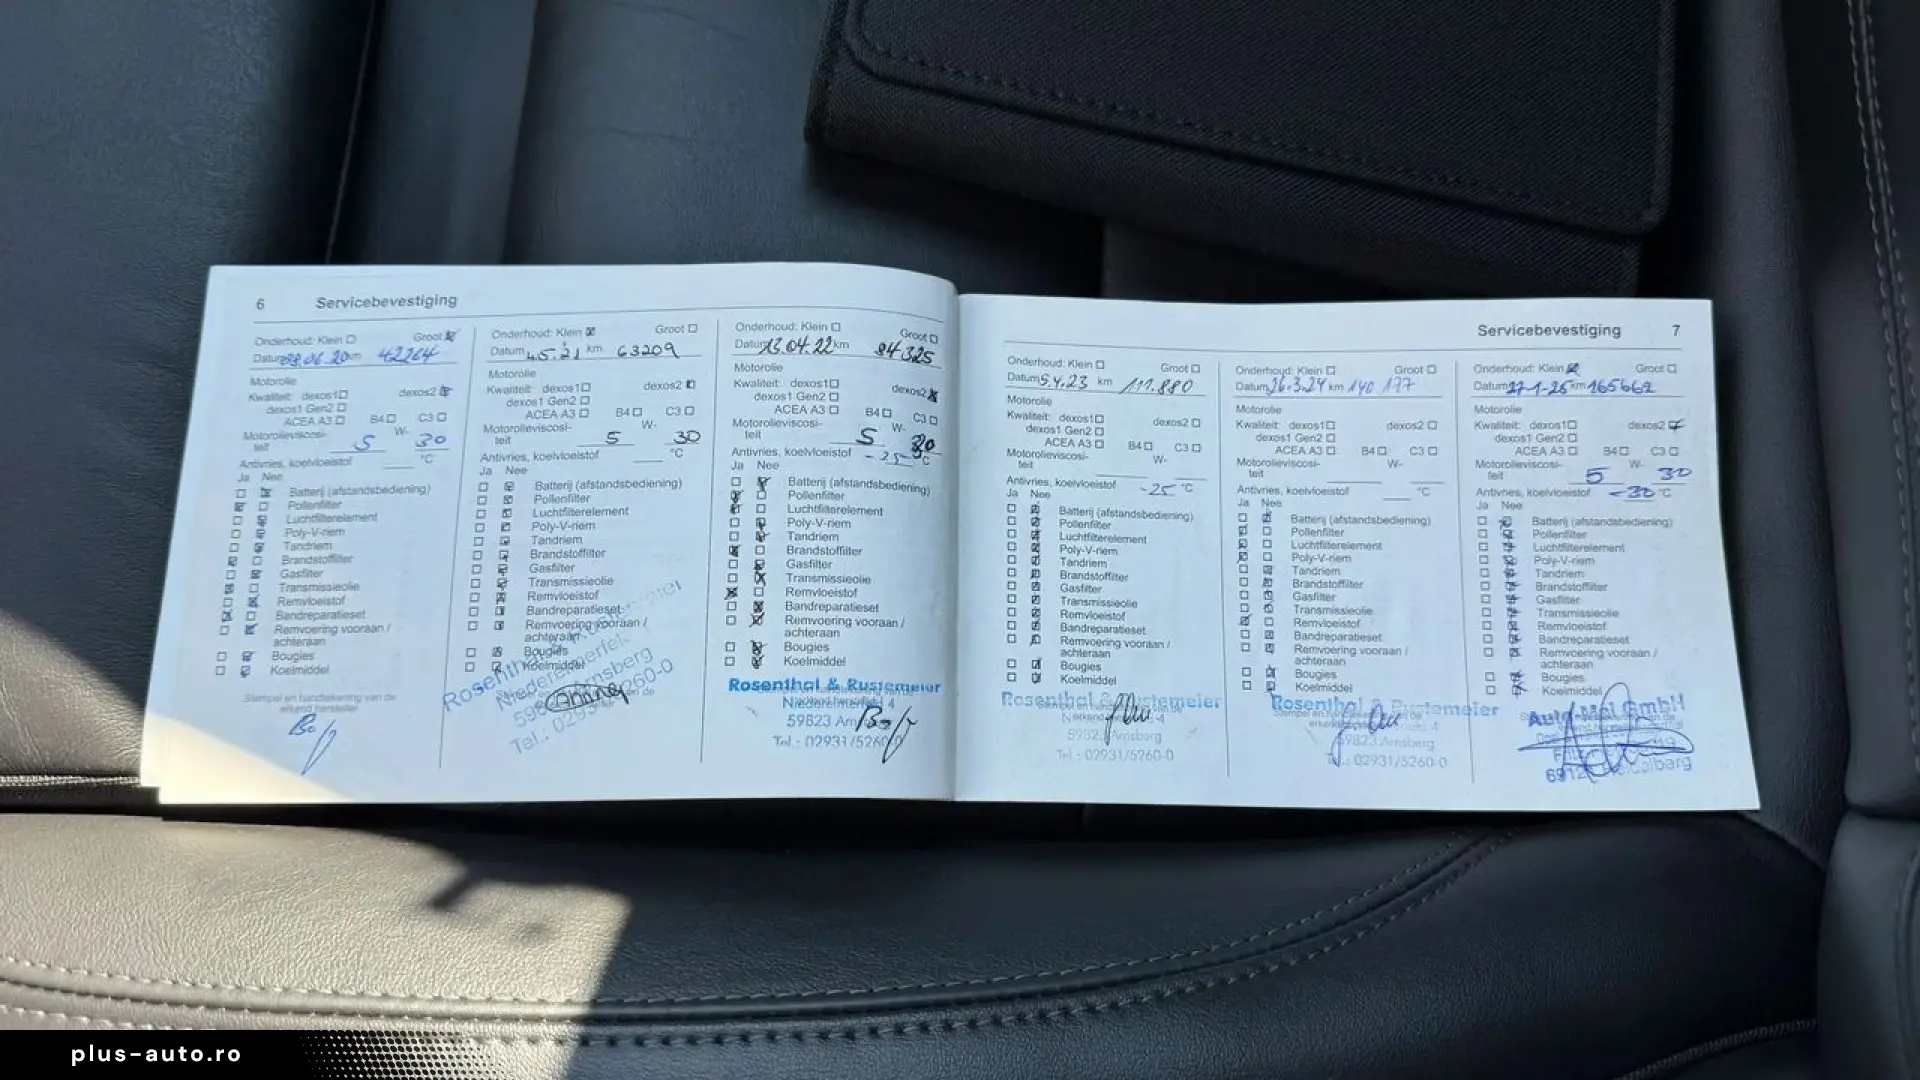 6 Servicebevestiging
Onderhoud: Klein Groot
Datum 08.06.20 km 42264
Motorolie
Kwaliteit: dexos1 dexos2
dexos1 Gen2
ACEA A3 B4 C3
Motorolieviscosi- W-
teit 5 30
Antivries, koelvloeistof °C
Ja Nee
Batterij (afstandsbediening)
Pollenfilter
Luchtfilterelement
Poly-V-riem
Tandriem
Brandstoffilter
Gasfilter
Transmissieolie
Remvloeistof
Bandreparatieset
Remvoering vooraan /
achteraan
Bougies
Koelmiddel
Stempel en handtekening van de
erkend hersteller
Onderhoud: Klein Groot
Datum 4.5.21 km 63209
Motorolie
Kwaliteit: dexos1 dexos2
dexos1 Gen2
ACEA A3 B4 C3
Motorolieviscosi- W-
teit 5 30
Antivries, koelvloeistof °C
Ja Nee
Batterij (afstandsbediening)
Pollenfilter
Luchtfilterelement
Poly-V-riem
Tandriem
Brandstoffilter
Gasfilter
Transmissieolie
Remvloeistof
Bandreparatieset
Remvoering vooraan /
achteraan
Bougies
Koelmiddel
Onderhoud: Klein Groot
Datum 13.04.22 km 84325
Motorolie
Kwaliteit: dexos1 dexos2
dexos1 Gen2
ACEA A3 B4 C3
Motorolieviscosi- W-
teit 5 30
Antivries, koelvloeistof -25 °C
Ja Nee
Batterij (afstandsbediening)
Pollenfilter
Luchtfilterelement
Poly-V-riem
Tandriem
Brandstoffilter
Gasfilter
Transmissieolie
Remvloeistof
Bandreparatieset
Remvoering vooraan /
achteraan
Bougies
Koelmiddel
Rosenthal & Rustemeier
Niedereimerfeld 4
59823
Tel.: 02931/5260-0
Servicebevestiging 7
Onderhoud: Klein Groot
Datum 5.4.23 km 111.880
Motorolie
Kwaliteit: dexos1 dexos2
dexos1 Gen2
ACEA A3 B4 C3
Motorolieviscosi- W-
teit
Antivries, koelvloeistof -25 °C
Ja Nee
Batterij (afstandsbediening)
Pollenfilter
Luchtfilterelement
Poly-V-riem
Tandriem
Brandstoffilter
Gasfilter
Transmissieolie
Remvloeistof
Bandreparatieset
Remvoering vooraan /
achteraan
Bougies
Koelmiddel
Rosenthal & Rustemeier
59823 Arnsberg
Tel.: 02931/5260-0
Onderhoud: Klein Groot
Datum 26.3.24 km 140.177
Motorolie
Kwaliteit: dexos1 dexos2
dexos1 Gen2
ACEA A3 B4 C3
Motorolieviscosi- W-
teit
Antivries, koelvloeistof °C
Ja Nee
Batterij (afstandsbediening)
Pollenfilter
Luchtfilterelement
Poly-V-riem
Tandriem
Brandstoffilter
Gasfilter
Transmissieolie
Remvloeistof
Bandreparatieset
Remvoering vooraan /
achteraan
Bougies
Koelmiddel
Rosenthal & Rustemeier
59823 Arnsberg
Tel.: 02931/5260-0
Onderhoud: Klein Groot
Datum 27-1-25 km 165662
Motorolie
Kwaliteit: dexos1 dexos2
dexos1 Gen2
ACEA A3 B4 C3
Motorolieviscosi- W-
teit 5 30
Antivries, koelvloeistof -30 °C
Ja Nee
Batterij (afstandsbediening)
Pollenfilter
Luchtfilterelement
Poly-V-riem
Tandriem
Brandstoffilter
Gasfilter
Transmissieolie
Remvloeistof
Bandreparatieset
Remvoering vooraan /
achteraan
Bougies
Koelmiddel
GmbH
plus-auto.ro